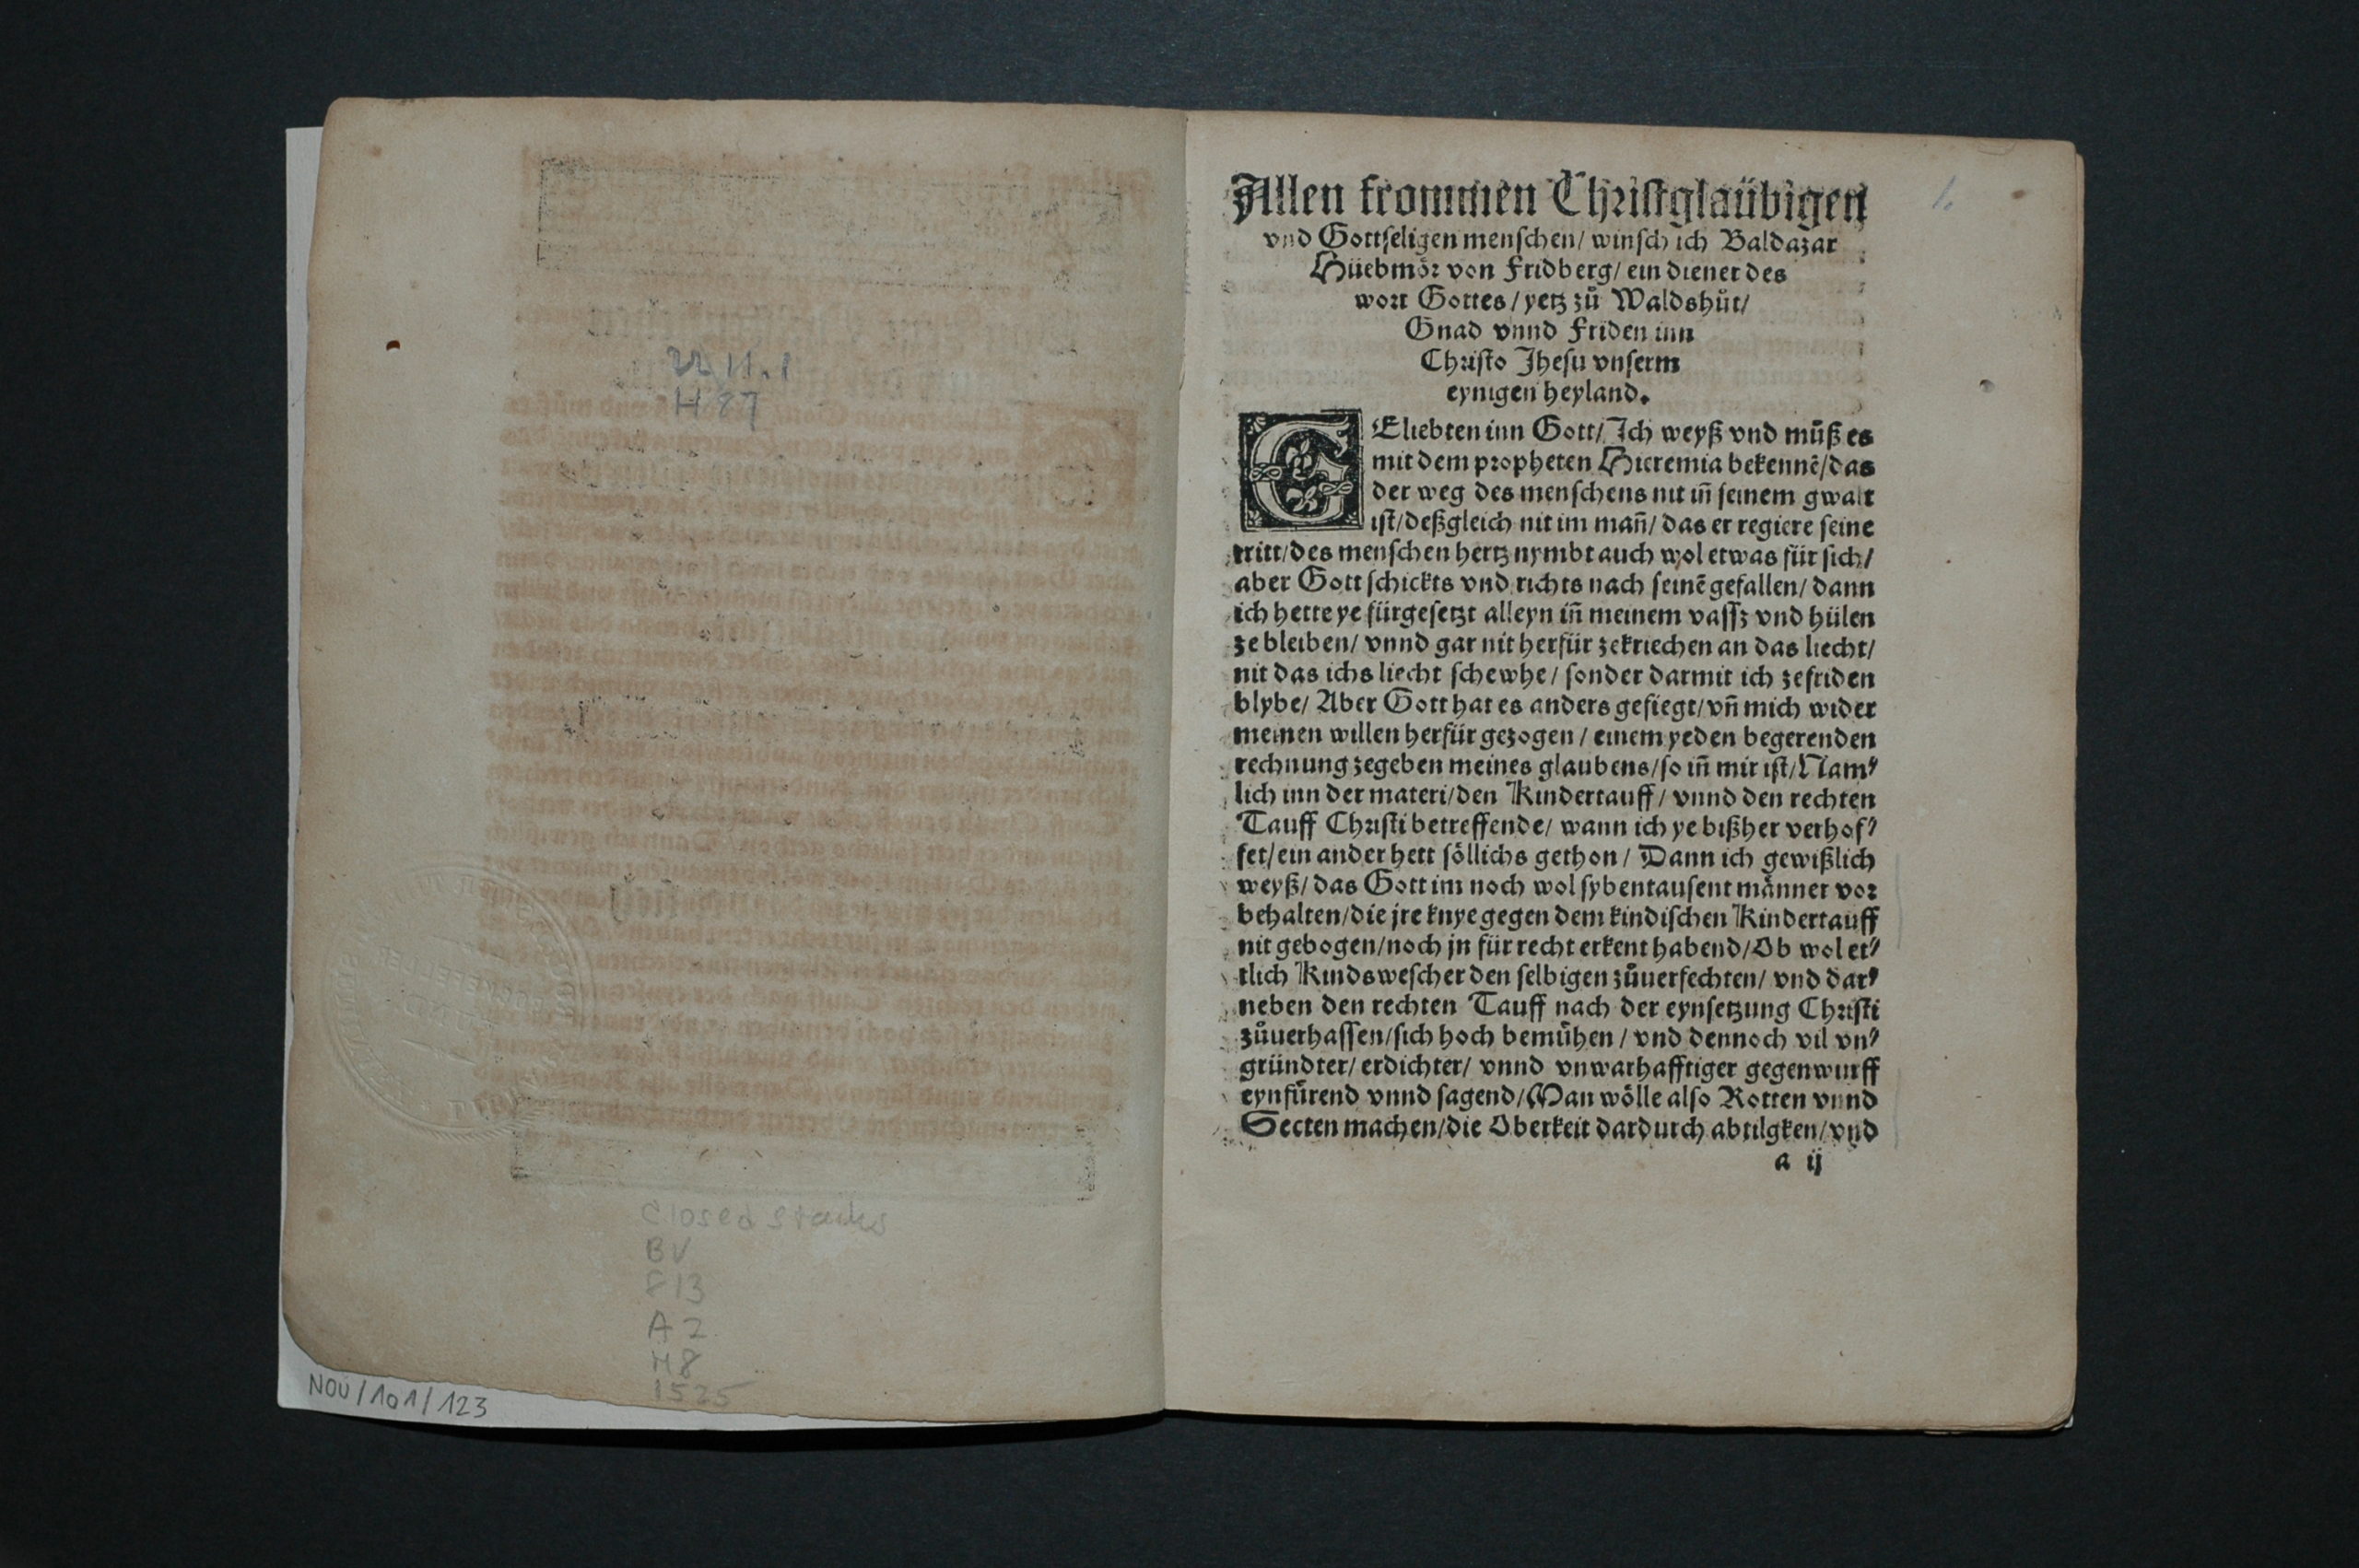 22 11.1
H 87
Closed stacks
BV
813
A2
H8
1525
NOU/101/123
1.
Allen frommen Christglaübigen
vnd Gottseligen menschen/ winsch ich Baldazar
Hüebmör von Fridberg/ ein diener des
wort Gottes/ yetz zů Waldshůt/
Gnad vnnd Friden inn
Christo Jhesu vnserm
eynigen heyland.
GEliebten inn Gott/ Ich weyß vnd můß es
mit dem propheten Hieremia bekennē/ das
der weg des menschens nit iñ seinem gwalt
ist/ deßgleich nit im mañ/ das er regiere seine
tritt/ des menschen hertz nymbt auch wol etwas für sich/
aber Gott schickts vnd richts nach seinē gefallen/ dann
ich hette ye fürgesetzt alleyn iñ meinem vassz vnd hülen
ze bleiben/ vnnd gar nit herfür zekriechen an das liecht/
nit das ichs liecht schewhe/ sonder darmit ich zefriden
blybe/ Aber Gott hat es anders gefiegt/ vñ mich wider
meinen willen herfür gezogen/ einem yeden begerenden
rechnung zegeben meines glaubens/ so iñ mir ist/ Nam⸗
lich inn der materi/ den Kindertauff/ vnnd den rechten
Tauff Christi betreffende/ wann ich ye bißher verhof⸗
fet/ ein ander hett söllichs gethon/ Dann ich gewißlich
weyß/ das Gott im noch wol sybentausent männer vor
behalten/ die jre knye gegen dem kindischen Kindertauff
nit gebogen/ noch jn für recht erkent habend/ Ob wol et⸗
tlich Kindswescher den selbigen zůuerfechten/ vnd dar⸗
neben den rechten Tauff nach der eynsetzung Christi
zůuerhassen/ sich hoch bemühen/ vnd dennoch vil vn⸗
gründter/ erdichter/ vnnd vnwarhafftiger gegenwurff
eynfürend vnnd sagend/ Man wölle also Rotten vnnd
Secten machen/ die Oberkeit dardurch abtilgken/ vnd
a ij